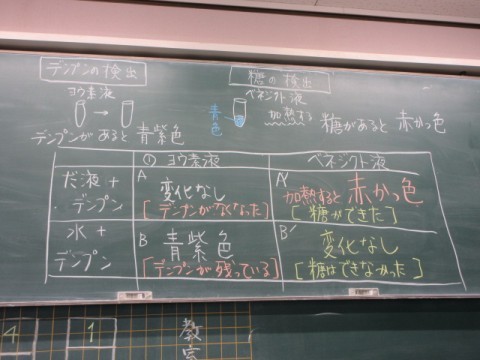 デンプンの検出
ヨウ素液
→
デンプンがあると 青紫色
糖の検出
ベネジクト液
青色
加熱する
糖があると 赤かっ色
① ヨウ素液
ベネジクト液
だ液+
デンプン
A
変化なし
[デンプンがなくなった]
A'
加熱すると 赤かっ色
[糖ができた]
水+
デンプン
B
青紫色
[デンプンが残っている]
B'
変化なし
[糖はできなかった]
4
1
教室